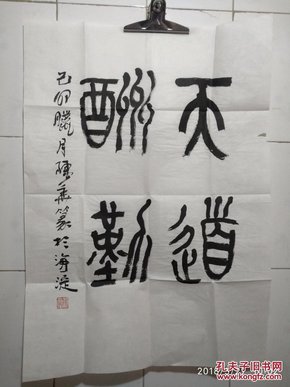 天道
酬勤
己卯臘月陳燕篆於海淀
孔夫子旧书网